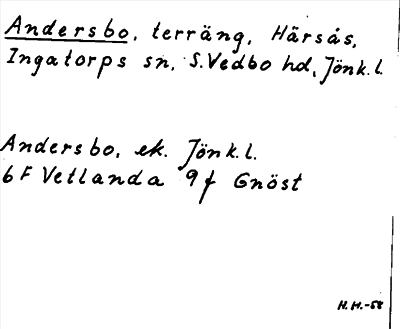 Andersbo, terräng, Härsås,
Ingatorps sn, S.Vedbo hd, Jönk.l.
Andersbo, ek. Jönk.l.
6F Vetlanda 9f Gnöst
H.H.-58